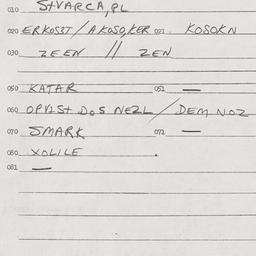 010 STVARCA,RL
020 ERKOSST / AKOSO,KER 021 KOSOKN
030 ZEEN // ZEN
050 KATAR 051 —
060 OPVISt DOS NEZL / DEM NOZ
070 SMARK 071 —
080 XOLILE
081 —